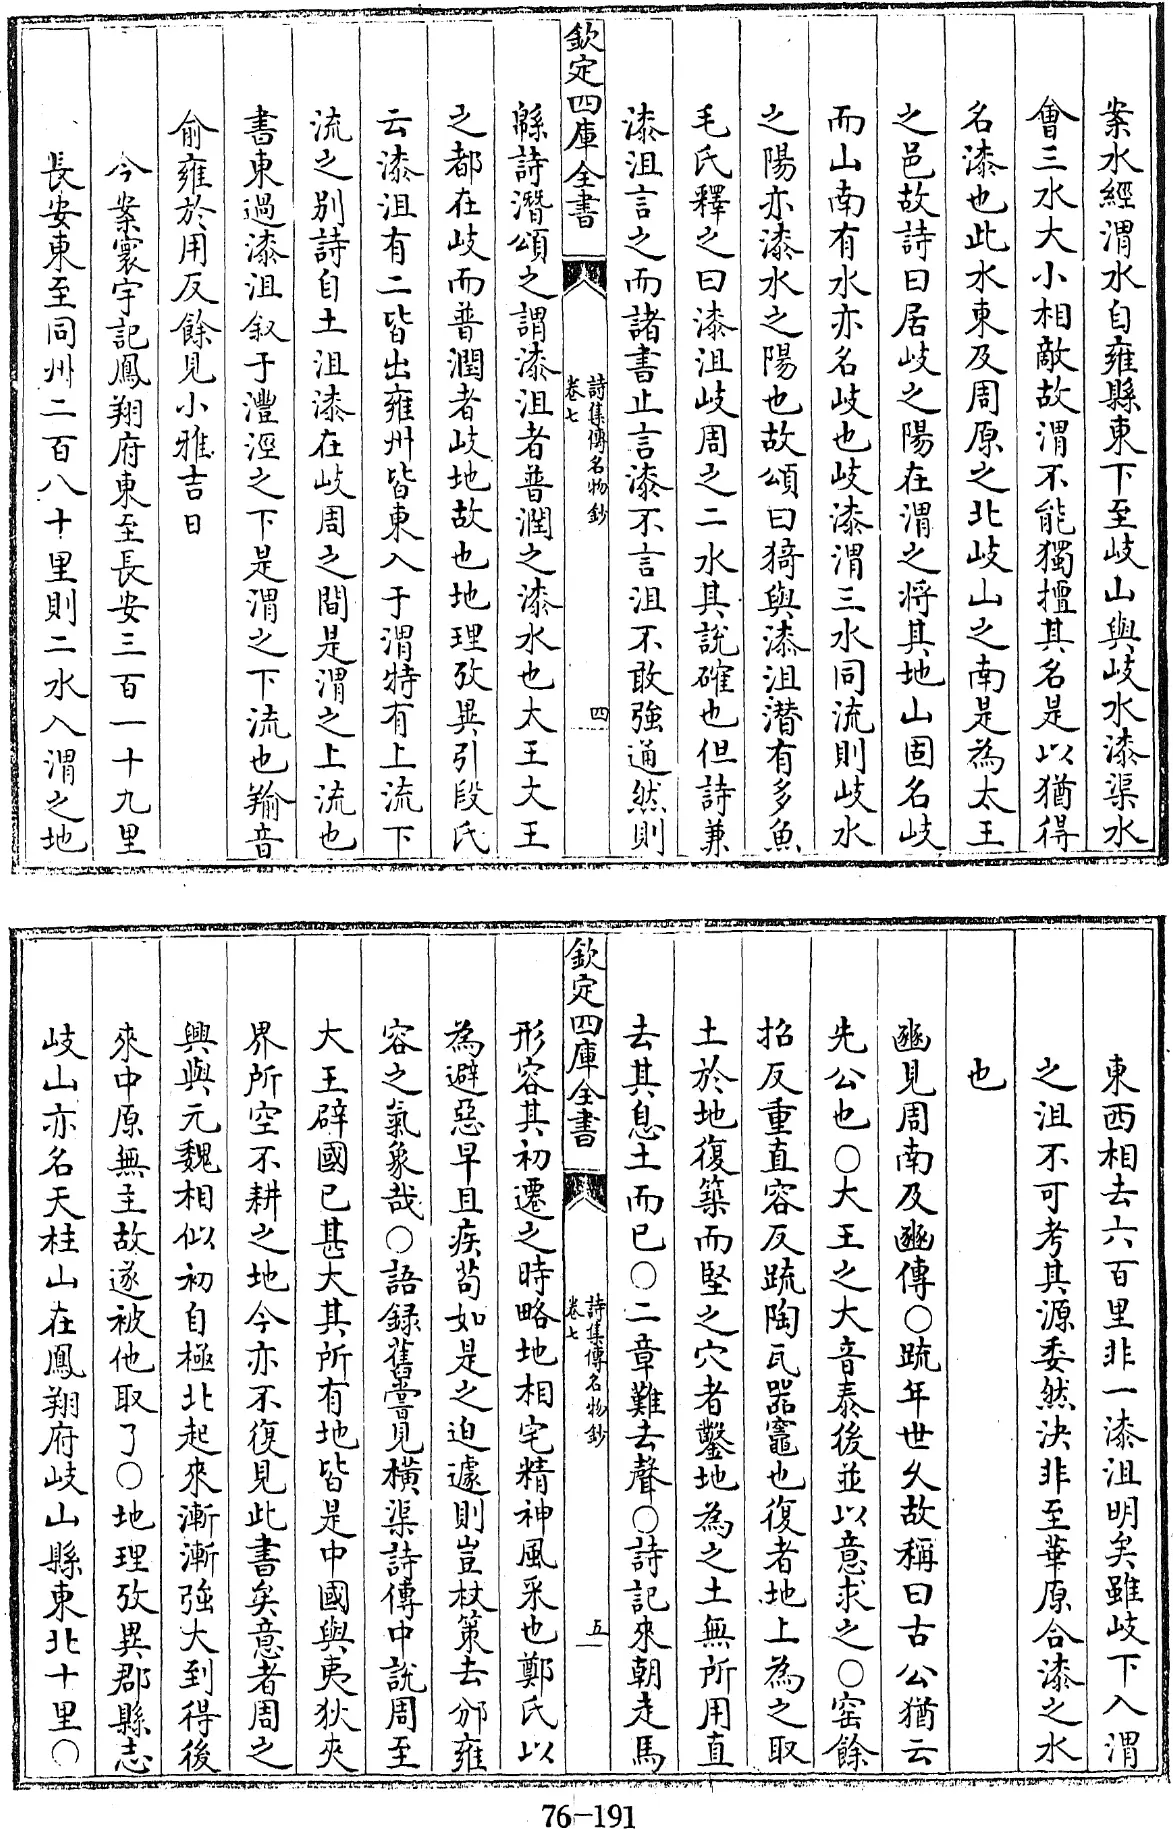 案水經渭水自雍縣東下至岐山與岐水漆渠水
㑹三水大小相敵故渭不能獨擅其名是以猶得
名漆也此水東及周原之北岐山之南是為太王
之邑故詩曰居岐之陽在渭之將其地山固名岐
而山南有水亦名岐也岐漆渭三水同流則岐水
之陽亦漆水之陽也故頌曰猗與漆沮潜有多魚
毛氏釋之曰漆沮岐周之二水其說確也但詩兼
漆沮言之而諸書止言漆不言沮不敢強通然則
欽定四庫全書
詩集傳名物鈔
卷七
四
緜詩潛頌之謂漆沮者普潤之漆水也太王文王
之都在岐而普潤者岐地故也地理攷異引段氏
云漆沮有二皆出雍州皆東入于渭特有上流下
流之别詩自土沮漆在岐周之間是渭之上流也
書東過漆沮叙于灃涇之下是渭之下流也羭音
俞雍於用反餘見小雅吉日
今案寰宇記鳳翔府東至長安三百一十九里
長安東至同州二百八十里則二水入渭之地
東西相去六百里非一漆沮明矣雖岐下入渭
之沮不可考其源委然決非至華原合漆之水
也
豳見周南及豳傳○疏年世久故稱曰古公猶云
先公也○大王之大音泰後並以意求之○窑餘
招反重直容反䟽陶瓦器竈也復者地上為之取
土於地復築而堅之穴者鑿地為之土無所用直
去其息土而已○二章難去聲○詩記來朝走馬
欽定四庫全書
詩集傳名物鈔
卷七
五
形容其初遷之時略地相宅精神風采也鄭氏以
為避惡早且疾苟如是之迫遽則豈杖策去邠雍
容之氣象哉○語録舊嘗見横渠詩傳中說周至
大王辟國已甚大其所有地皆是中國與夷狄夾
界所空不耕之地今亦不復見此書矣意者周之
興與元魏相似初自極北起來漸漸強大到得後
來中原無主故遂被他取了○地理攷異郡縣志
岐山亦名天柱山在鳳翔府岐山縣東北十里○
76-191